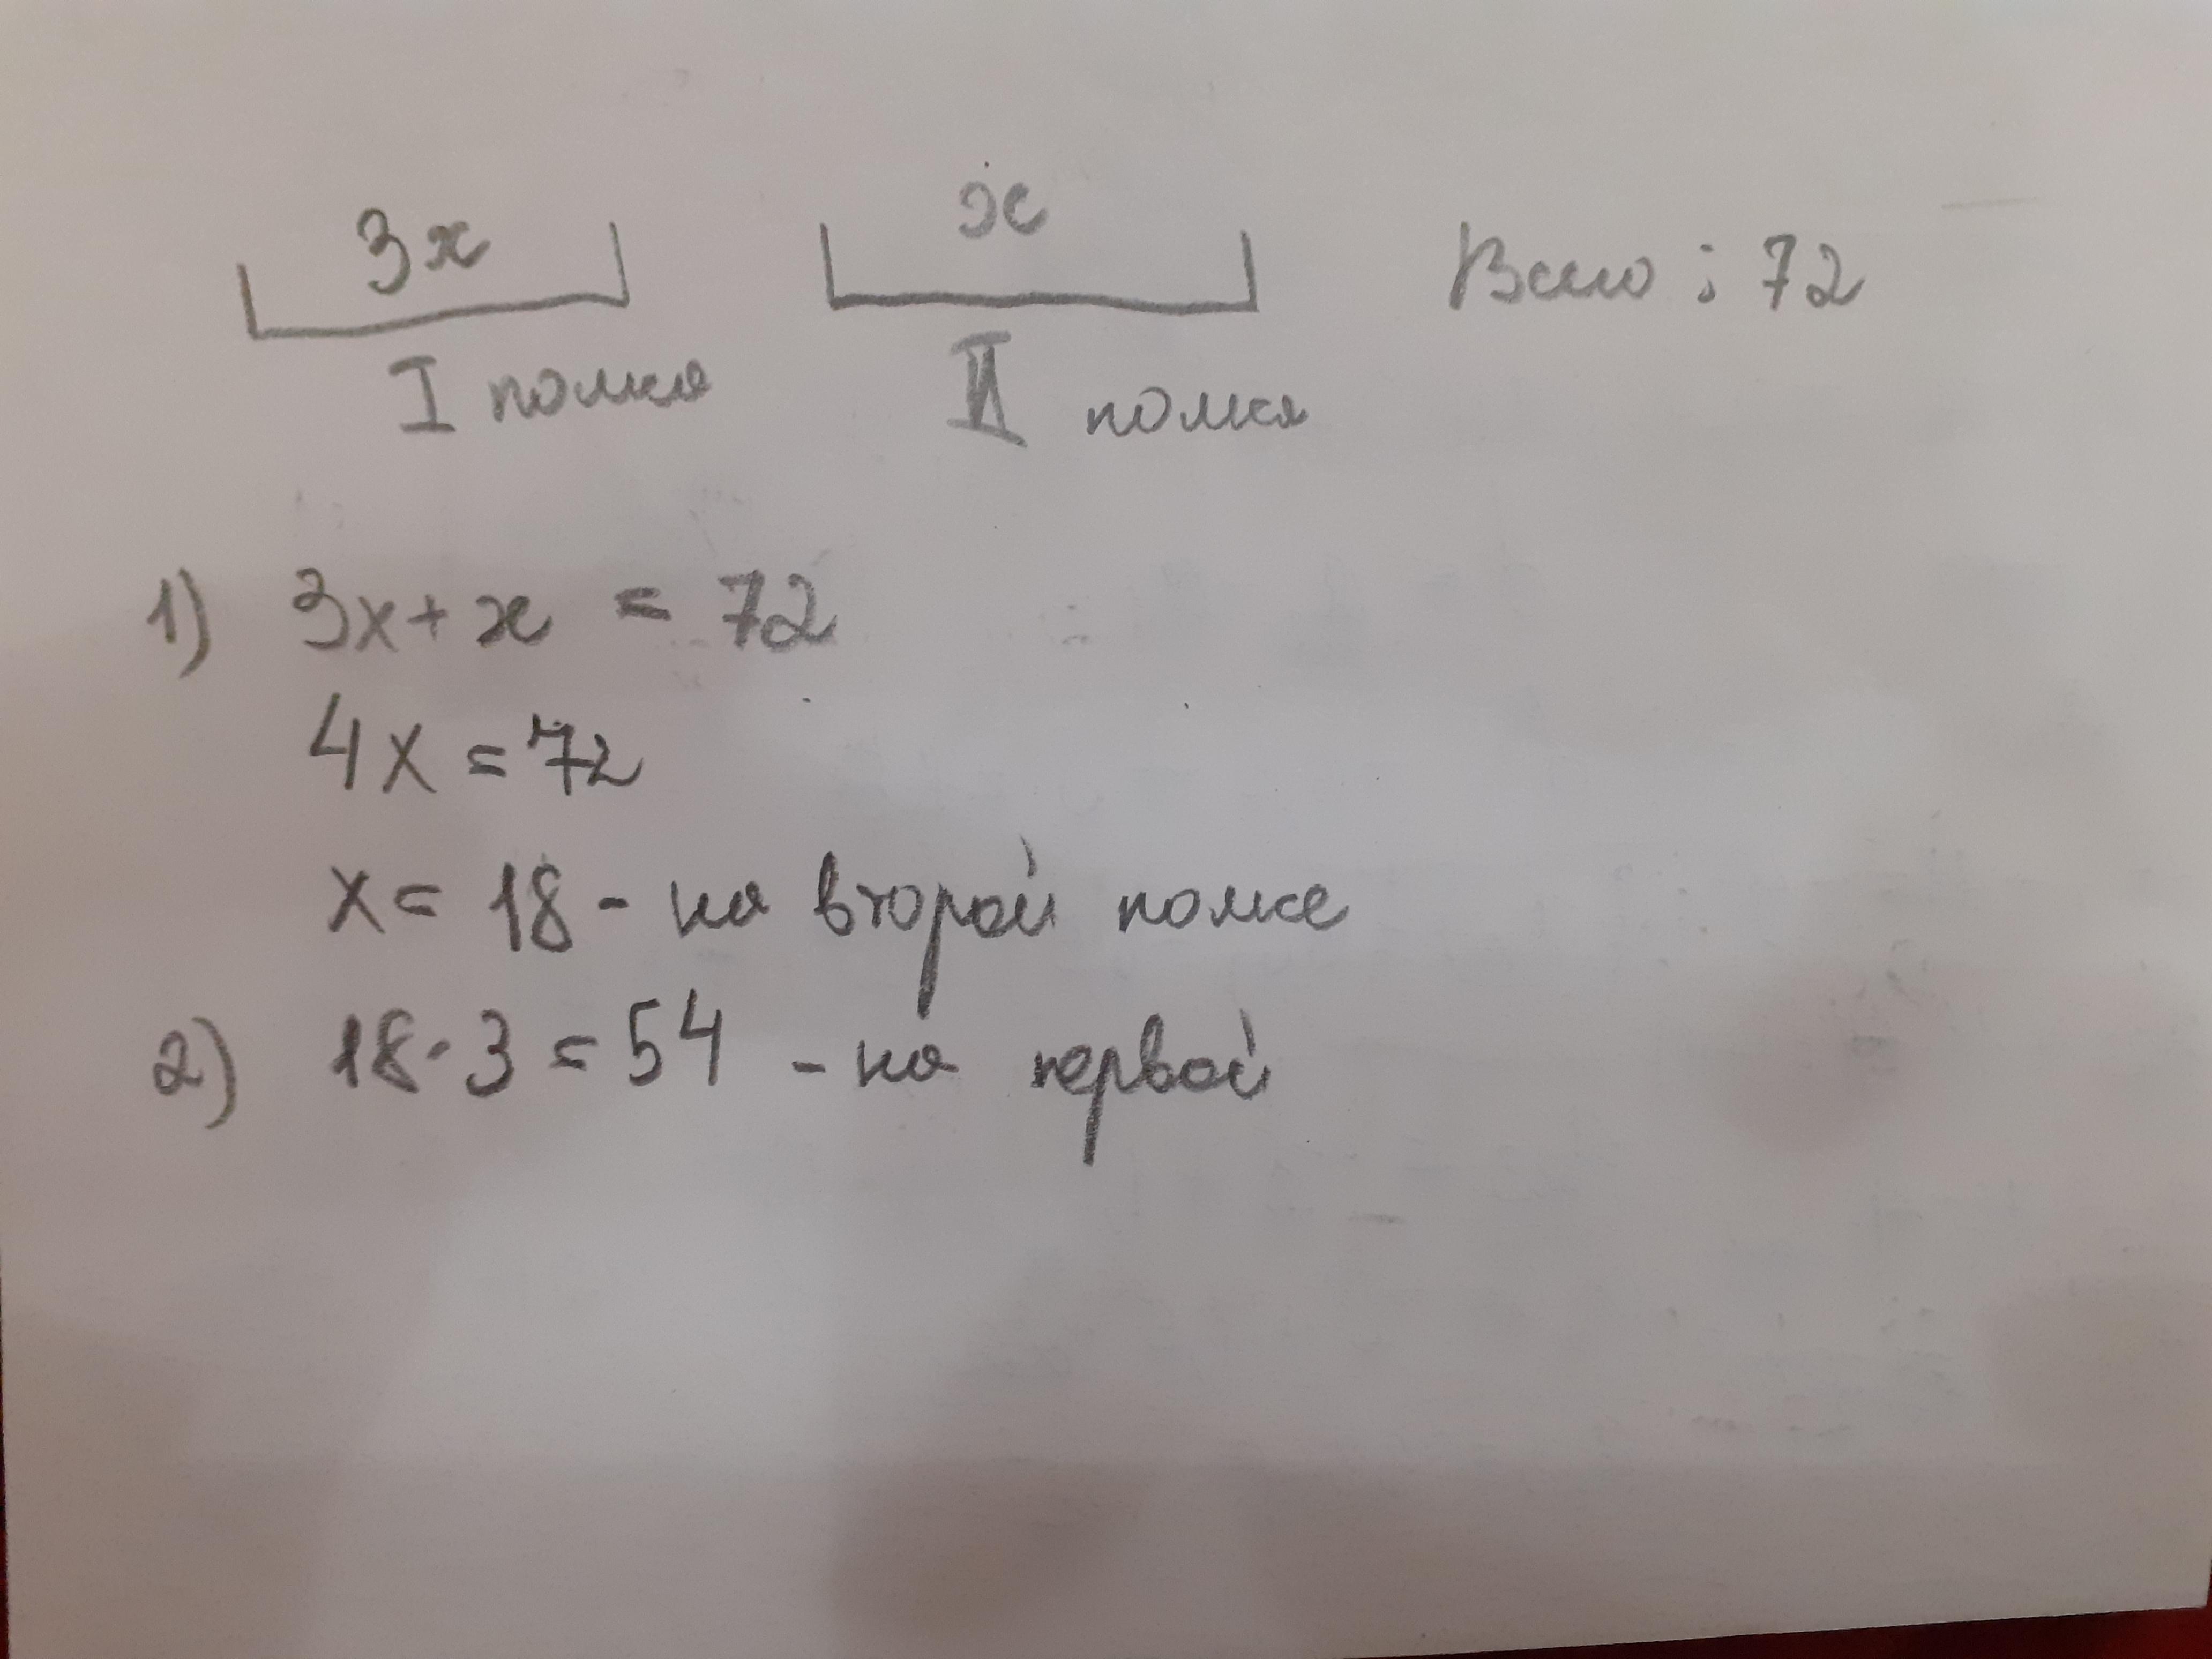 3x x Всего : 72
I полка II полка
1) 3x + x = 72
4x = 72
x = 18 - на второй полке
2) 18 · 3 = 54 - на первой